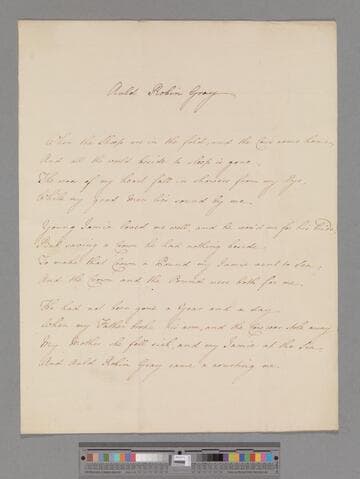 Auld Robin Gray
When the Sheep are in the fold, and the Cows come hame,
And all the world beside to sleep is gone,
The woes of my heart fall in showers from my Eye,
While my good Man lies sound by me.
Young Jamie loved me well, and he sought me for his Bride
But saving a Crown he had nothing beside.
To make that Crown a Pound my Jamie went to Sea,
And the Crown and the Pound were both for me.
He had not been gone a Year and a day
When my Father broke his arm, and the Cow was stole away
My Mother she fell sick, and my Jamie at the Sea
And Auld Robin Gray came a courting me.